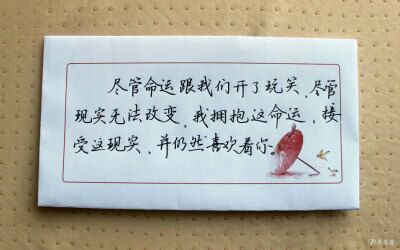 尽管命运跟我们开了玩笑、尽管
现实无法改变，我拥抱这命运，接
受这现实、并仍然喜欢着你。